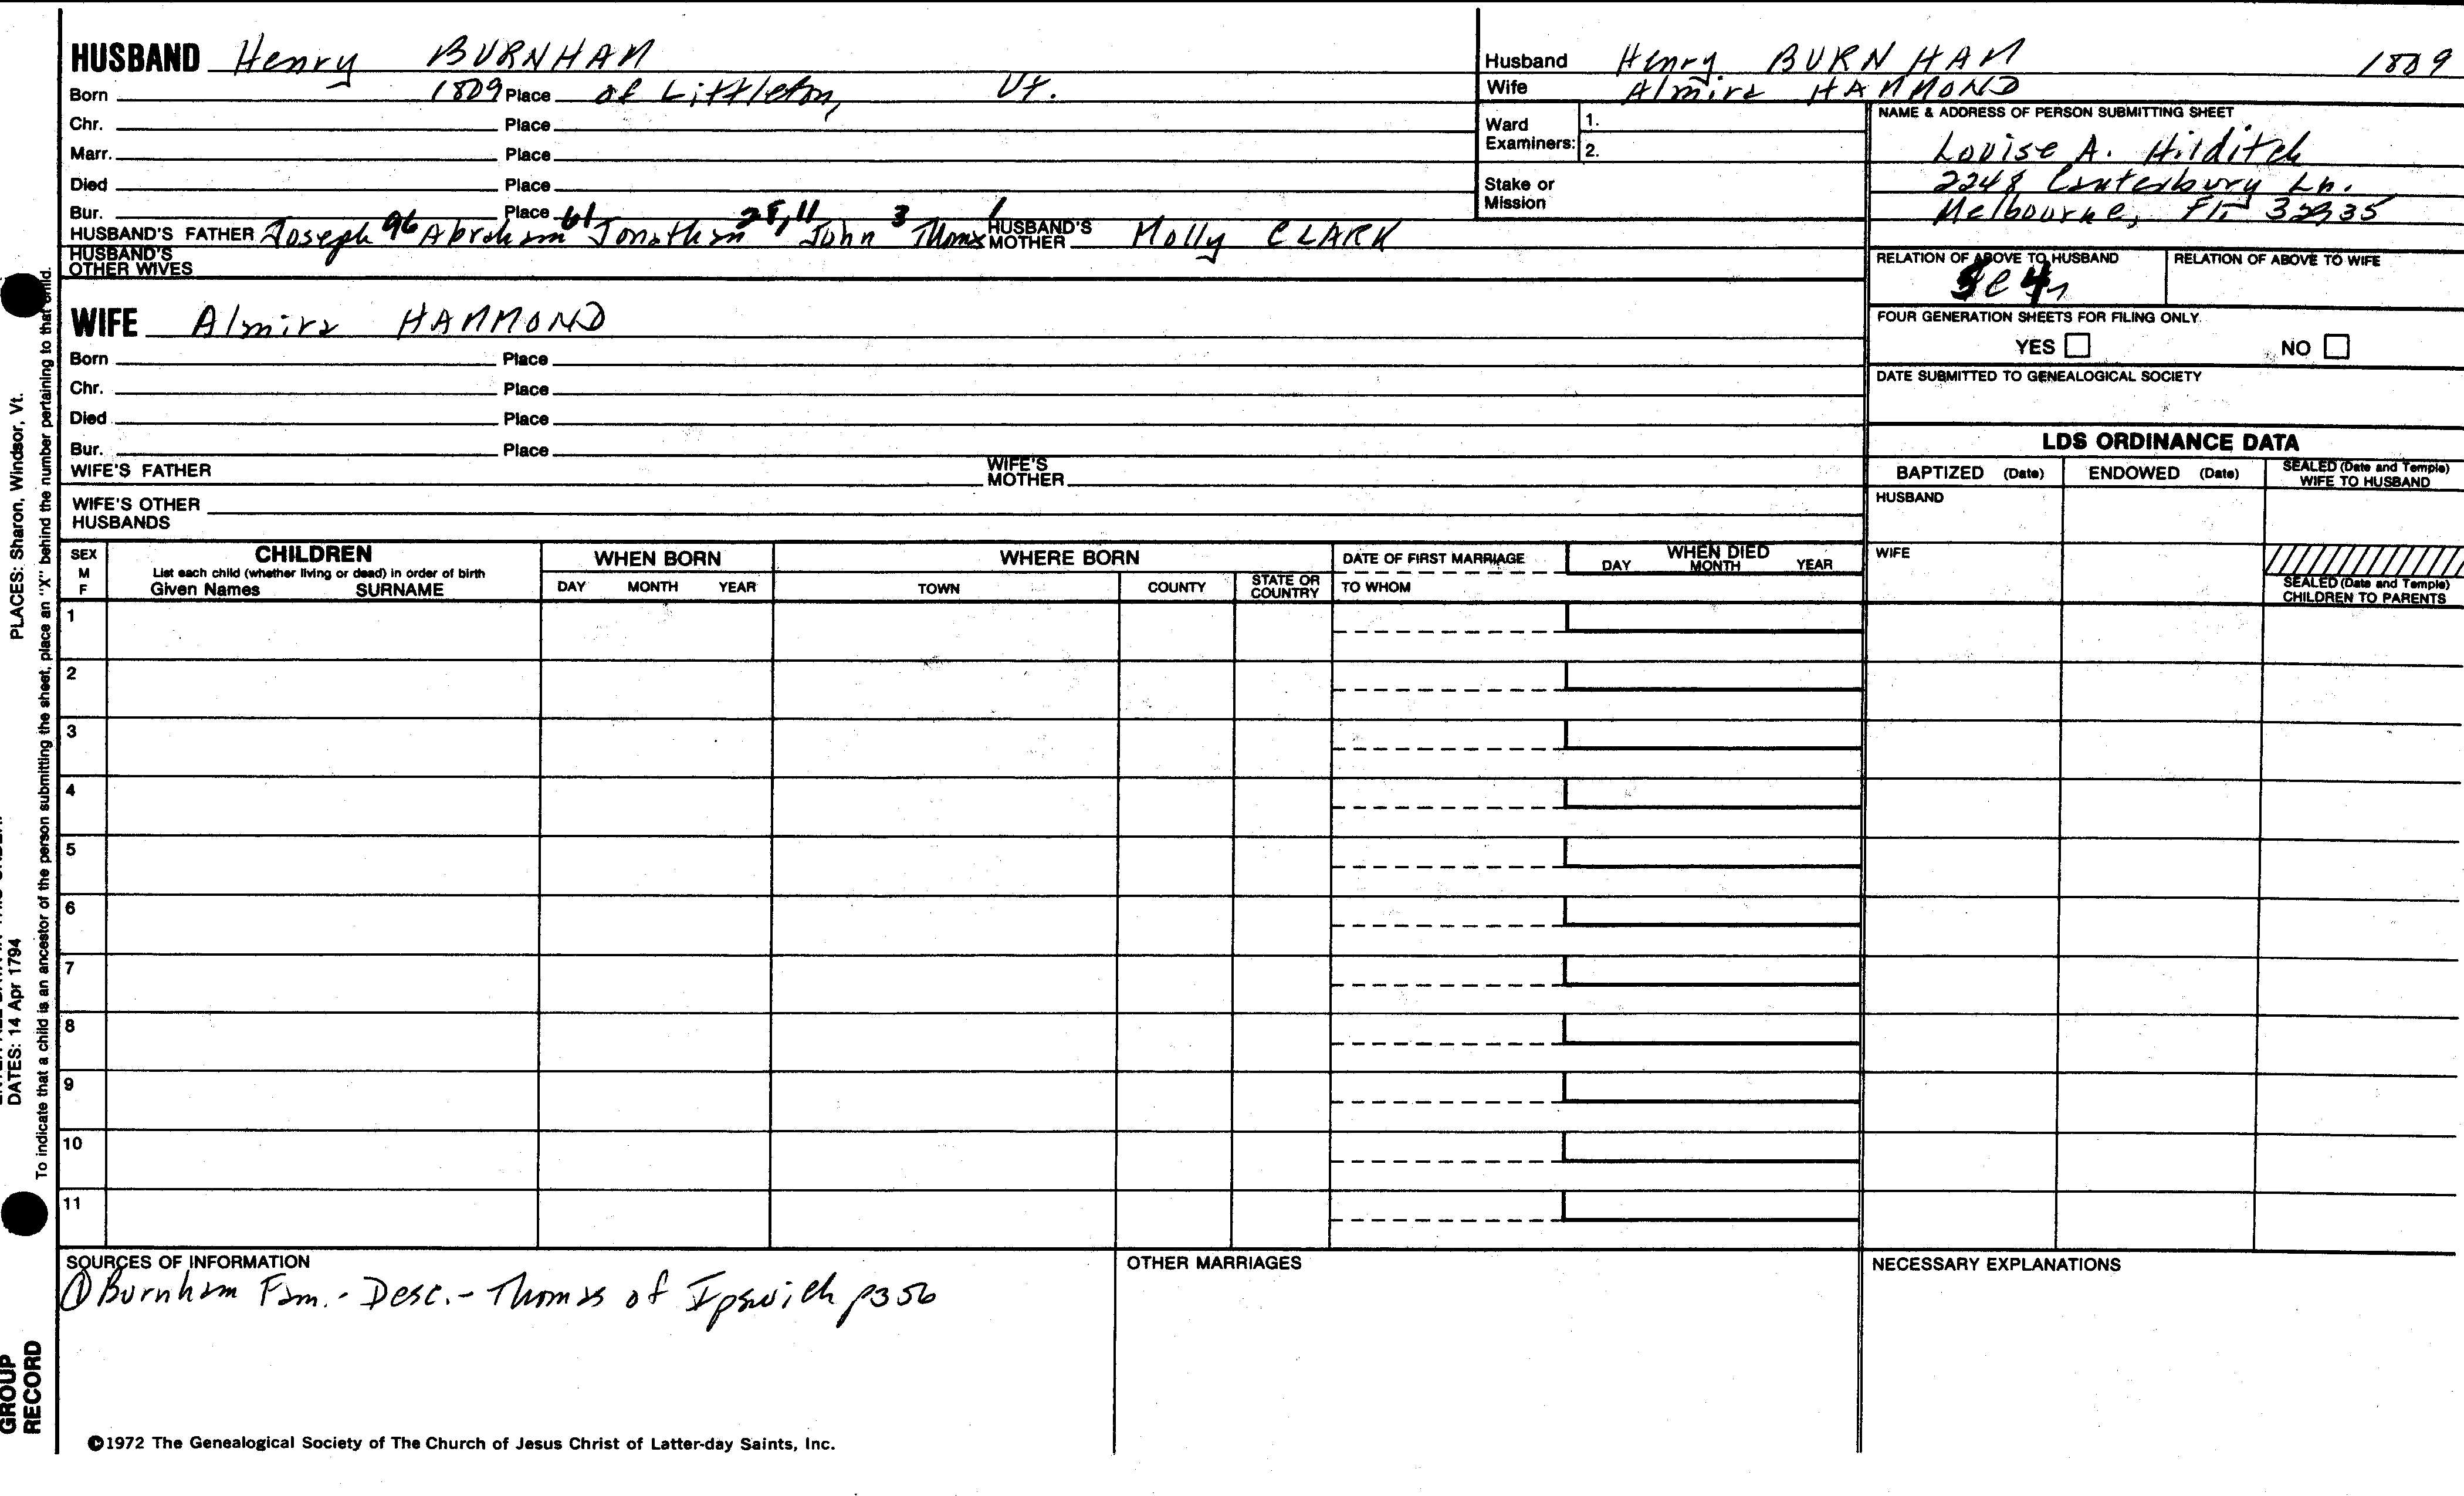 HUSBAND Henry BURNHAM
Born 1809 Place of Littleton, Vt.
Chr. Place
Marr. Place
Died Place
Bur. Place
HUSBAND'S FATHER Joseph 96 Abraham 61 Jonathan 28, 11 John 3 Thomas 1 HUSBAND'S MOTHER Molly CLARK
HUSBAND'S OTHER WIVES
WIFE Almira HAMMOND
Born Place
Chr. Place
Died Place
Bur. Place
WIFE'S FATHER WIFE'S MOTHER
WIFE'S OTHER HUSBANDS
Husband Henry BURNHAM 1809
Wife Almira HAMMOND
Ward Examiners: 1.
2.
Stake or Mission
NAME & ADDRESS OF PERSON SUBMITTING SHEET
Louise A. Hilditch
2248 Canterbury Ln.
Melbourne, Fla 32935
RELATION OF ABOVE TO HUSBAND RELATION OF ABOVE TO WIFE
FOUR GENERATION SHEETS FOR FILING ONLY.
YES NO
DATE SUBMITTED TO GENEALOGICAL SOCIETY
LDS ORDINANCE DATA
BAPTIZED (Date) ENDOWED (Date) SEALED (Date and Temple) WIFE TO HUSBAND
HUSBAND
WIFE
SEALED (Date and Temple) CHILDREN TO PARENTS
SEX M F
CHILDREN
List each child (whether living or dead) in order of birth
Given Names SURNAME
WHEN BORN
DAY MONTH YEAR
WHERE BORN
TOWN COUNTY STATE OR COUNTRY
DATE OF FIRST MARRIAGE
TO WHOM
WHEN DIED
DAY MONTH YEAR
1
2
3
4
5
6
7
8
9
10
11
SOURCES OF INFORMATION
① Burnham Fam. - Desc. - Thomas of Ipswich p356
OTHER MARRIAGES
NECESSARY EXPLANATIONS
©1972 The Genealogical Society of The Church of Jesus Christ of Latter-day Saints, Inc.
PLACES: Sharon, Windsor, Vt.
DATES: 14 Apr 1794
To indicate that a child is an ancestor of the person submitting the sheet, place an "X" behind the number pertaining to that child.
GROUP
RECORD